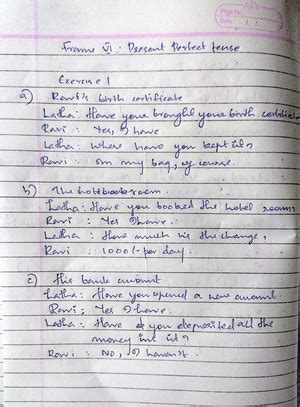 Page No:
Date:
Frame VI : Present Perfect tense
Exercise 1
a) Ravi's birth certificate
Latha: Have you brought your birth certificate
Ravi : Yes, I have.
Latha: where have you kept it?
Ravi : In my bag, of course.
b) The hotel room
Latha: Have you booked the hotel room?
Ravi : Yes I have.
Latha : How much is the charge,
Ravi : 1000/- per day.
c) His bank amount
Latha: Have you opened a new amount.
Ravi: Yes I have.
Latha: Have you deposited all the
money in it?
Ravi : No, I haven't.